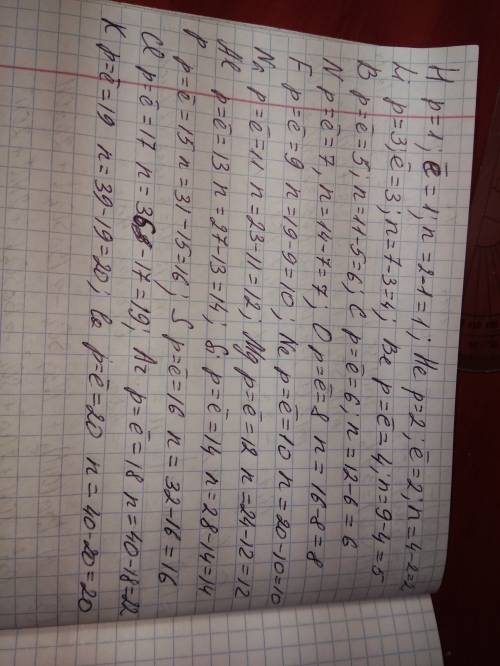 H p=1; ē=1; n=2-1=1; He p=2; ē=2; n=4-2=2
Li p=3, ē=3; n=7-3=4; Be p=ē=4; n=9-4=5
B p=ē=5; n=11-5=6; C p=ē=6; n=12-6=6
N p=ē=7, n=14-7=7; O p=ē=8 n=16-8=8
F p=ē=9 n=19-9=10; Ne p=ē=10 n=20-10=10
Na p=ē=11 n=23-11=12; Mg p=ē=12 n=24-12=12
Al p=ē=13 n=27-13=14; Si p=ē=14 n=28-14=14
P p=ē=15 n=31-15=16; S p=ē=16 n=32-16=16
Cl p=ē=17 n=36-17=19; Ar p=ē=18 n=40-18=22
K p=ē=19 n=39-19=20; Ca p=ē=20 n=40-20=20